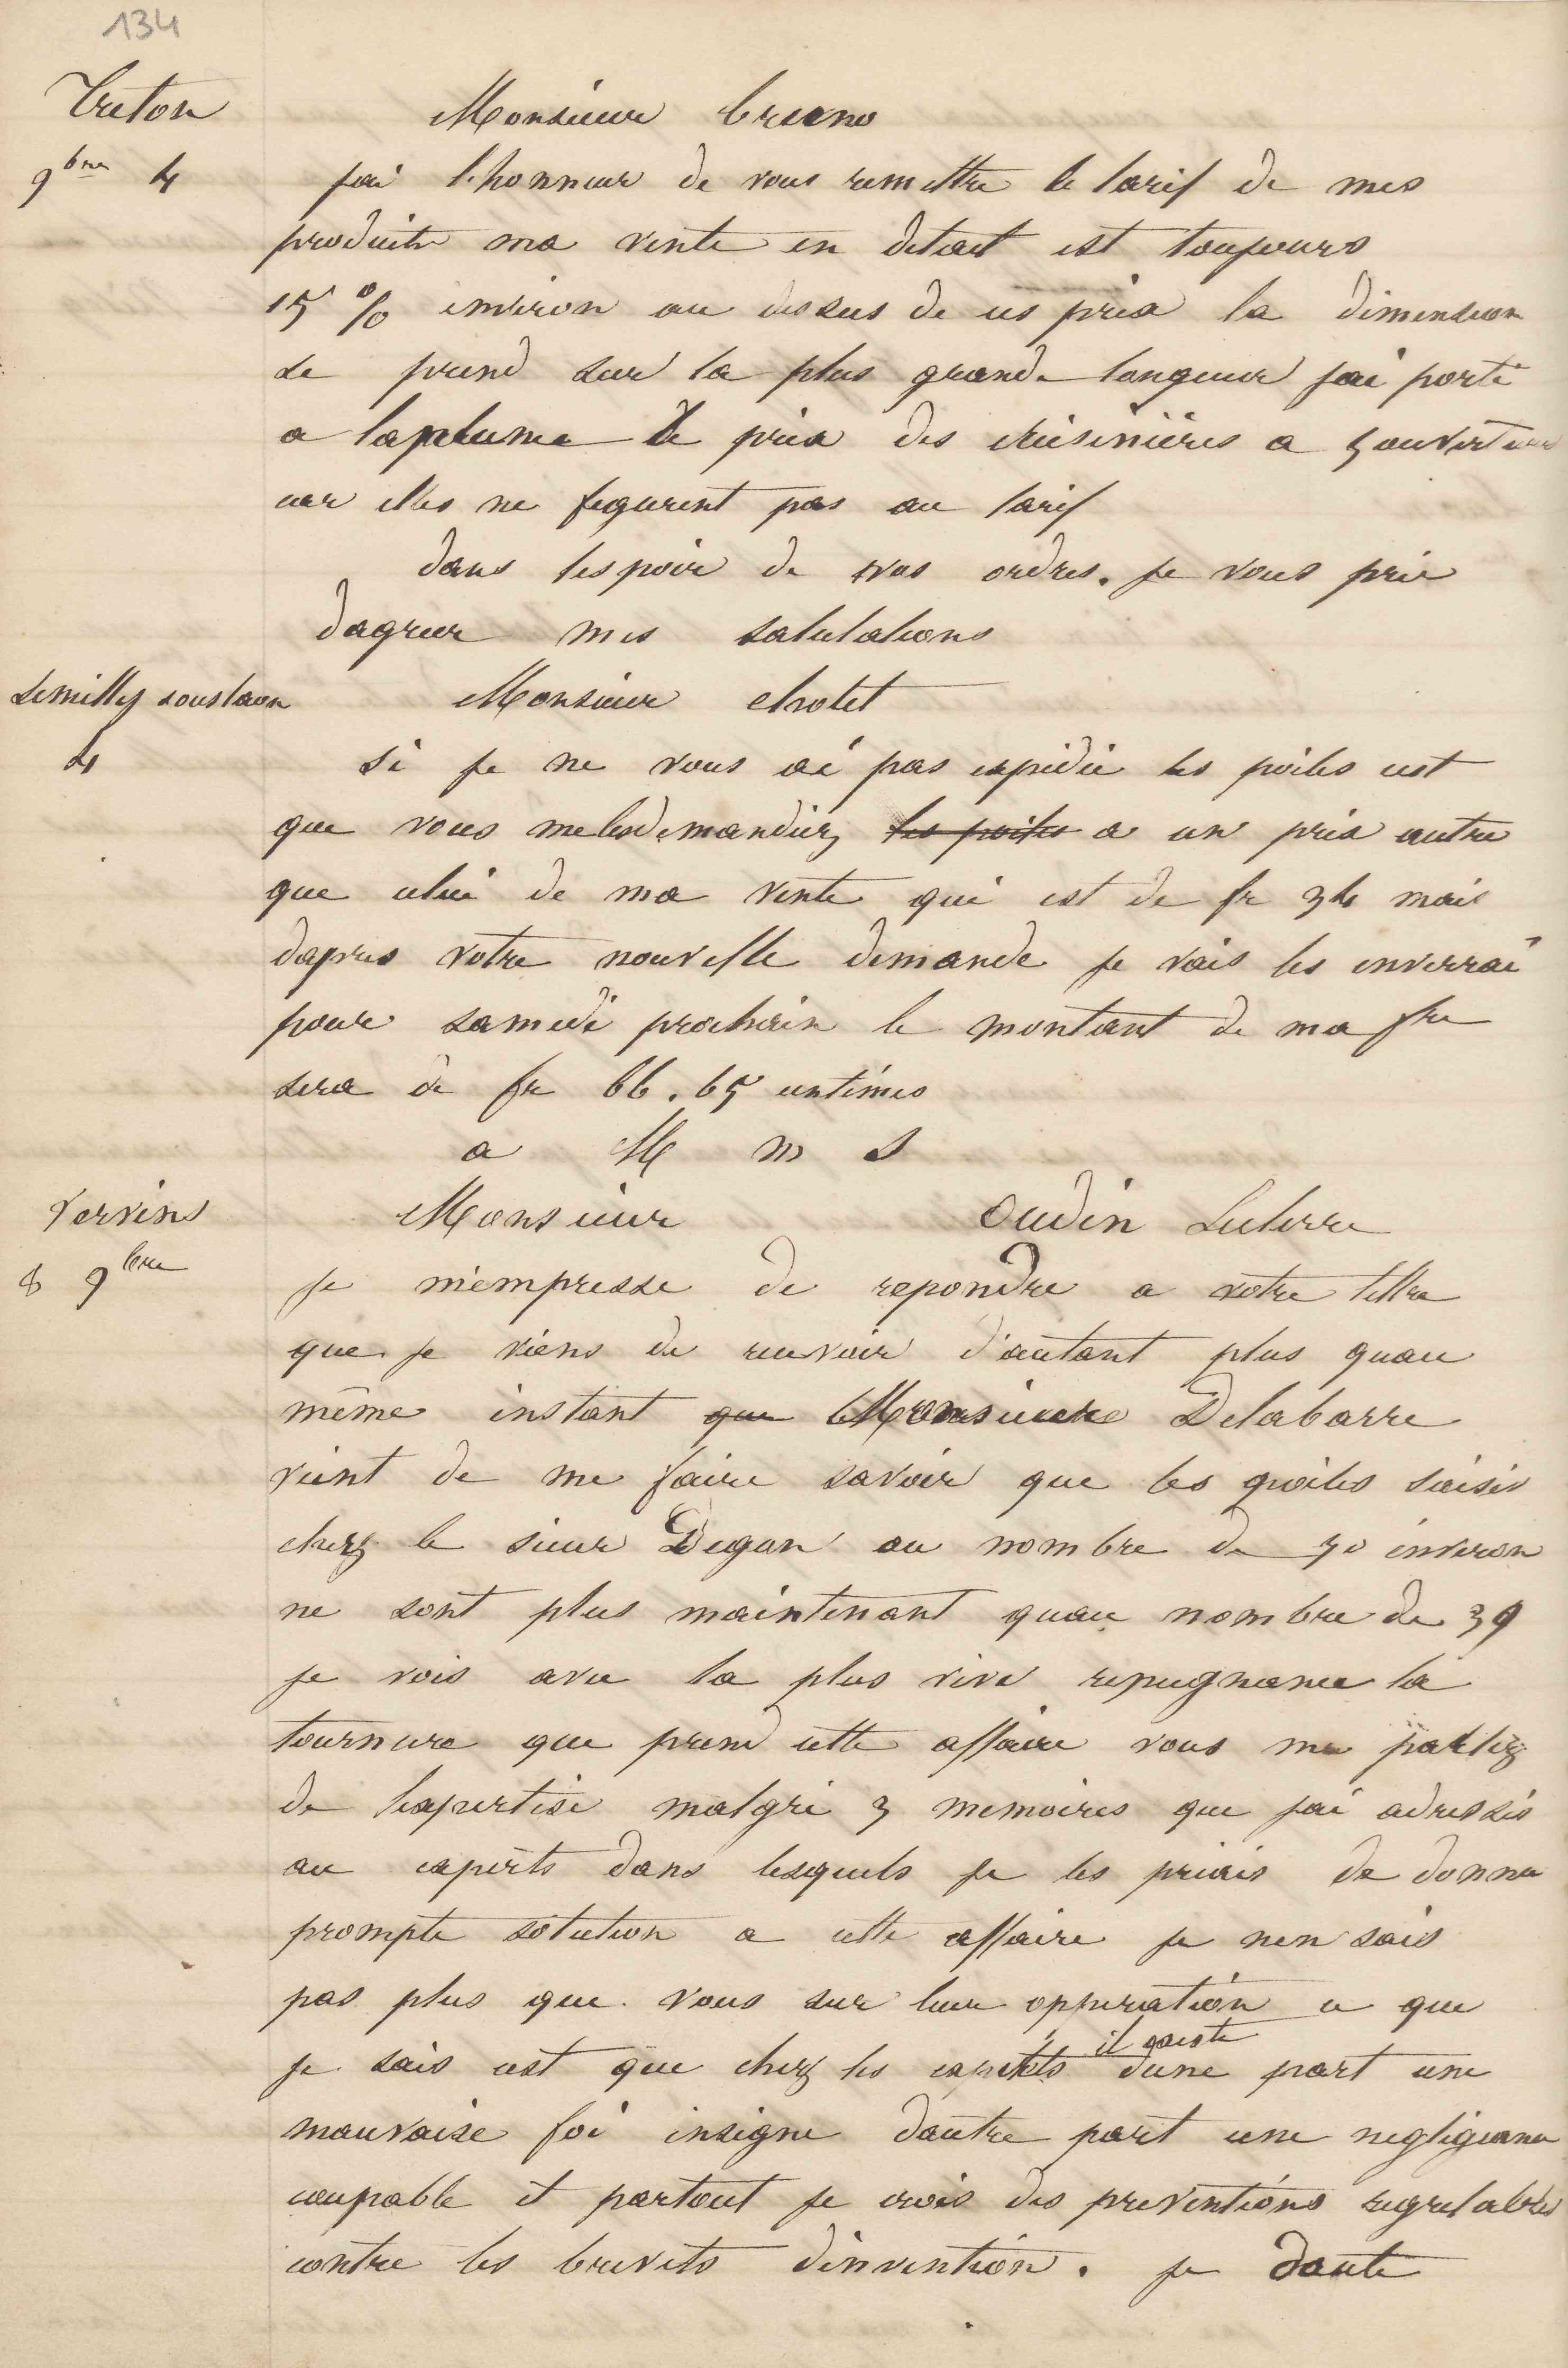 134
Creton
9bre 4
Monsieur bruno
jai l'honneur de vous remettre le tarif de mes
produits ma vente en detail est toujours
15 % environ au dessus de ces prix la dimension
se prend sur la plus grande longueur jai porté
a laplume le prix des cuisinières a 5 ouvertures
car elles ne figurent pas au tarif
dans lespoir de vos ordres. je vous prie
dagreer mes salutations
Semilly sous laon
4
Monsieur cholet
si je ne vous ai pas expédié les poiles cest
que vous me les demandiez les poiles a un prix autre
que celui de ma vente qui est de fr 34 mais
dapres votre nouvelle demande je vais les enverrai
pour samedi prochain le montant de ma fre
sera de fr 66.65 centimes
a M m S
Vervins
8 9bre
Monsieur Oudin Leclerre
je m'empresse de repondre a votre lettre
que je viens de recevoir d'autant plus quau
même instant que Monsieur Delabarre
vient de me faire savoir que les poiles saisis
chez le sieur Degon au nombre de 50 environ
ne sont plus maintenant quau nombre de 39
je vois avec la plus vive repugnance la
tournure que prend cette affaire vous me parlez
de lexpertise malgré 3 memoires que jai adressés
au experts dans lesquels je les priais de donner
prompte solution a cette affaire je nen sais
pas plus que vous sur leur opperation ce que
je sais cest que chez les experts il existe dune part une
mauvaise foi insigne dautre part une negligeance
coupable et partout je crois des preventions regretables
contre les brevets d'invention. je doute